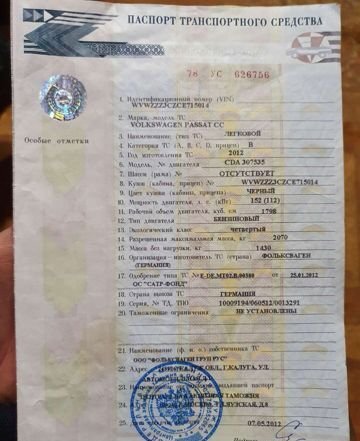 ПАСПОРТ ТРАНСПОРТНОГО СРЕДСТВА
78 УС 626756
1. Идентификационный номер (VIN)
WVWZZZ3CZCE715014
2. Марка, модель ТС
VOLKSWAGEN PASSAT CC
3. Наименование (тип ТС) ЛЕГКОВОЙ
Особые отметки
4. Категория ТС (А, В, С, D, прицеп) B
5. Год изготовления ТС 2012
6. Модель, № двигателя CDA 307535
7. Шасси (рама) № ОТСУТСТВУЕТ
8. Кузов (кабина, прицеп) № WVWZZZ3CZCE715014
9. Цвет кузова (кабины, прицепа) ЧЕРНЫЙ
10. Мощность двигателя, л. с. (кВт) 152 (112)
11. Рабочий объем двигателя, куб. см 1798
12. Тип двигателя БЕНЗИНОВЫЙ
13. Экологический класс четвертый
14. Разрешенная максимальная масса, кг 2070
15. Масса без нагрузки, кг 1430
16. Организация - изготовитель ТС (страна) ФОЛЬКСВАГЕН
(ГЕРМАНИЯ)
17. Одобрение типа ТС № E-DE.MT02.B.00580 от 25.01.2012
ОС "САТР-ФОНД"
18. Страна вывоза ТС ГЕРМАНИЯ
19. Серия, № ТД, ТПО 10009194/060512/0013291
20. Таможенные ограничения НЕ УСТАНОВЛЕНЫ
21. Наименование (ф. и. о.) собственника ТС
ООО "ФОЛЬКСВАГЕН ГРУП РУС"
22. Адрес ОБЛ, Г.КАЛУГА, УЛ.
АВТОМОБИЛЬНОЙ
23. выдавшей паспорт
АКЦИЗНАЯ ТАМОЖНЯ
24. Адрес
25. 07.05.2012